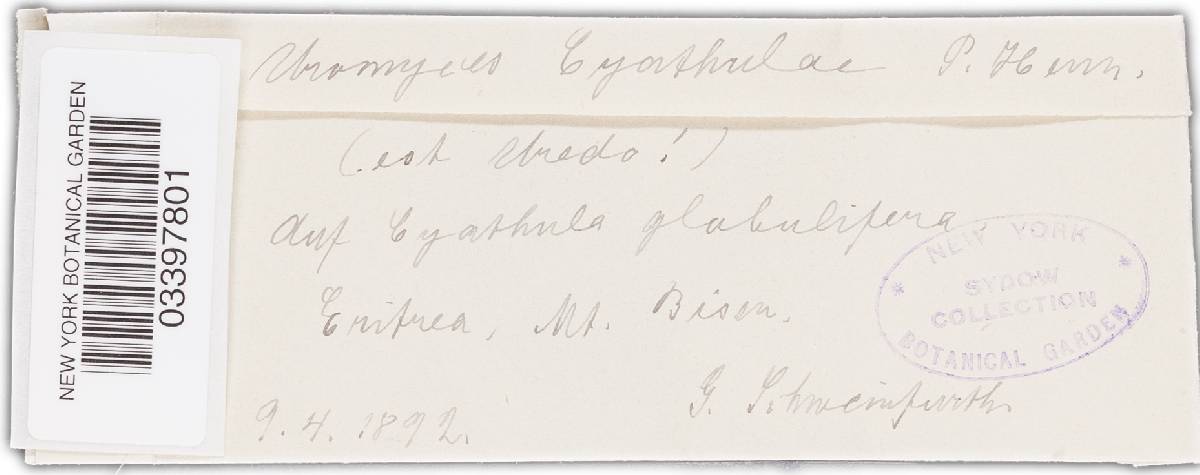 NEW YORK BOTANICAL GARDEN
03397801
Uromyces Cyathulae P. Henn.
(est Uredo!)
Auf Cyathula globulifera,
Eritrea, Mt. Bisen.
G. Schweinfurth
9. 4. 1892.
NEW YORK
* SYDOW *
COLLECTION
BOTANICAL GARDEN